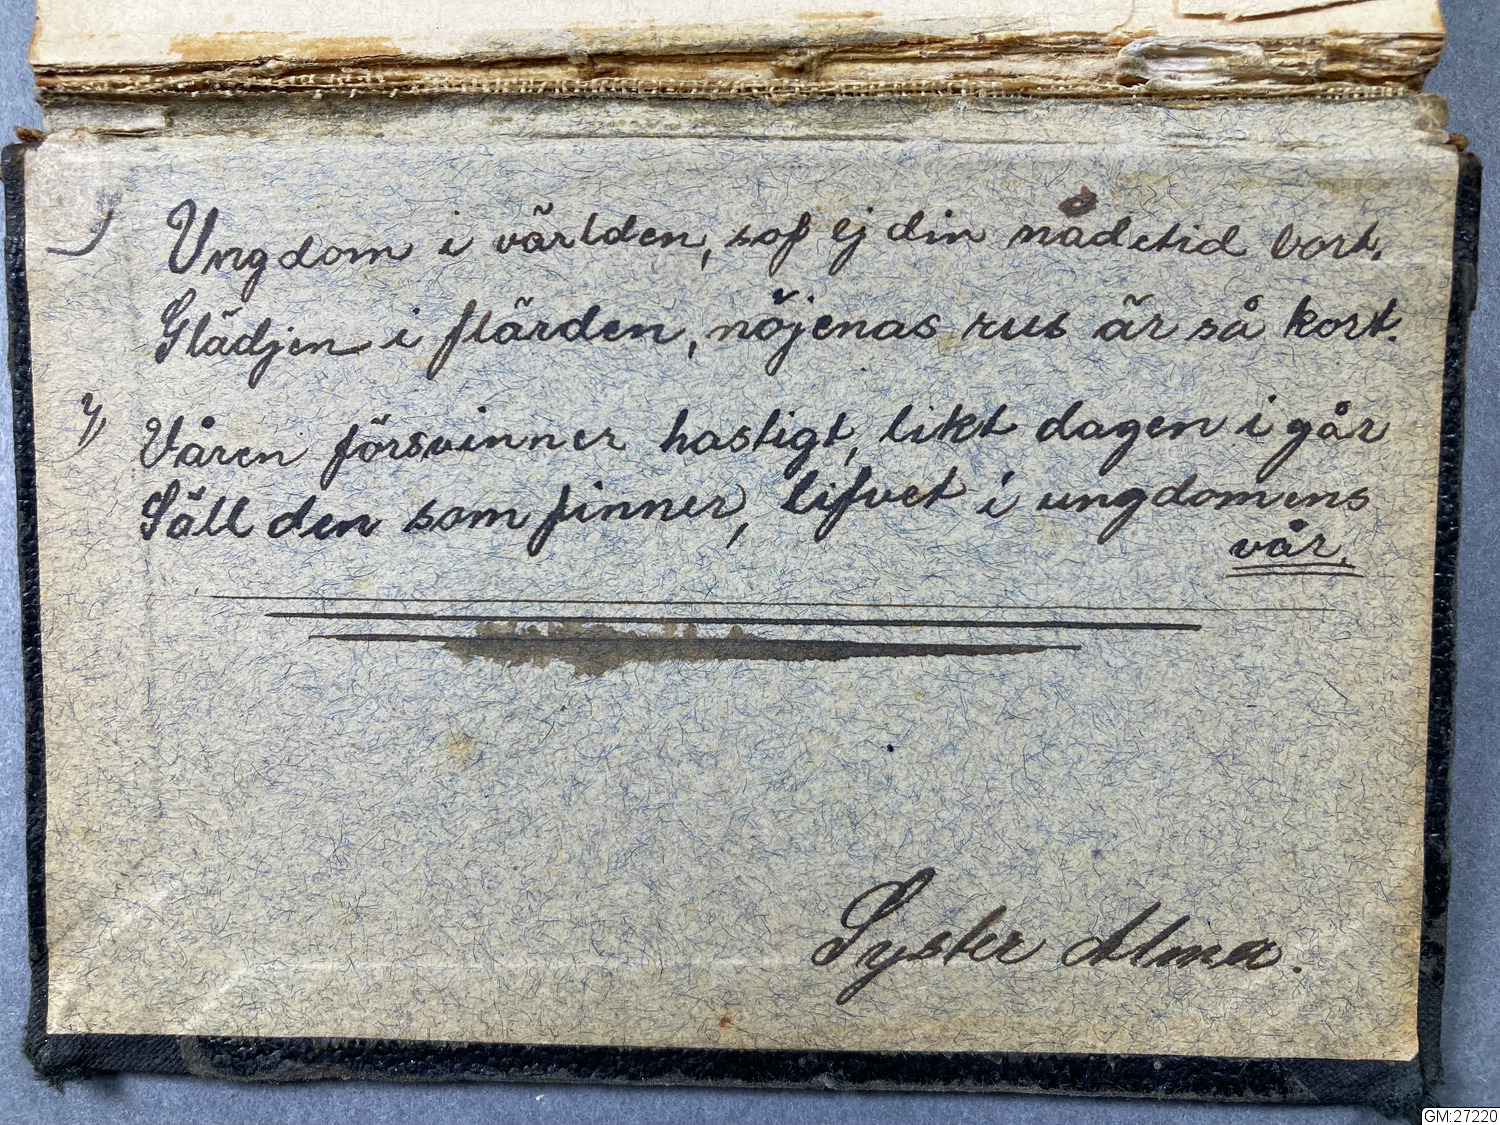 Ungdom i världen, sof ej din nådetid bort.
Glädjen i flärden, nöjenas rus är så kort.
Våren försvinner hastigt, likt dagen i går
Säll den som finner, lifvet i ungdomens
vår.
Syster Alma.
GM:27220